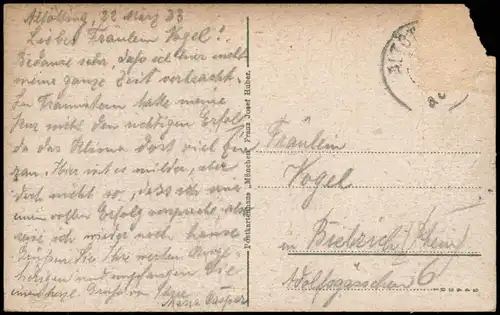 Altötting, 22 März 33
Liebes Fräulein Vogel!
Bedaure sehr, daß ich hier nicht
meine ganze Zeit verbracht.
In Traunstein hatte meine
Kur nicht den richtigen Erfolg
da das Klima dort viel
Hier ist es milder, aber
doch nicht so, dass ich mir
einen vollen Erfolg verspreche also
reise ich wieder nach hause
Grüßen Sie Ihre werten Ange-
hörigen und empfangen Sie
Grüße von Ihrer
Maria
Postkartenhaus „München“ Franz Josef Huber.
ALTÖT
Fräulein
Vogel
in
Wolfsgässchen 6